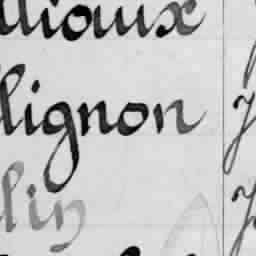 llioux
lignon
lin